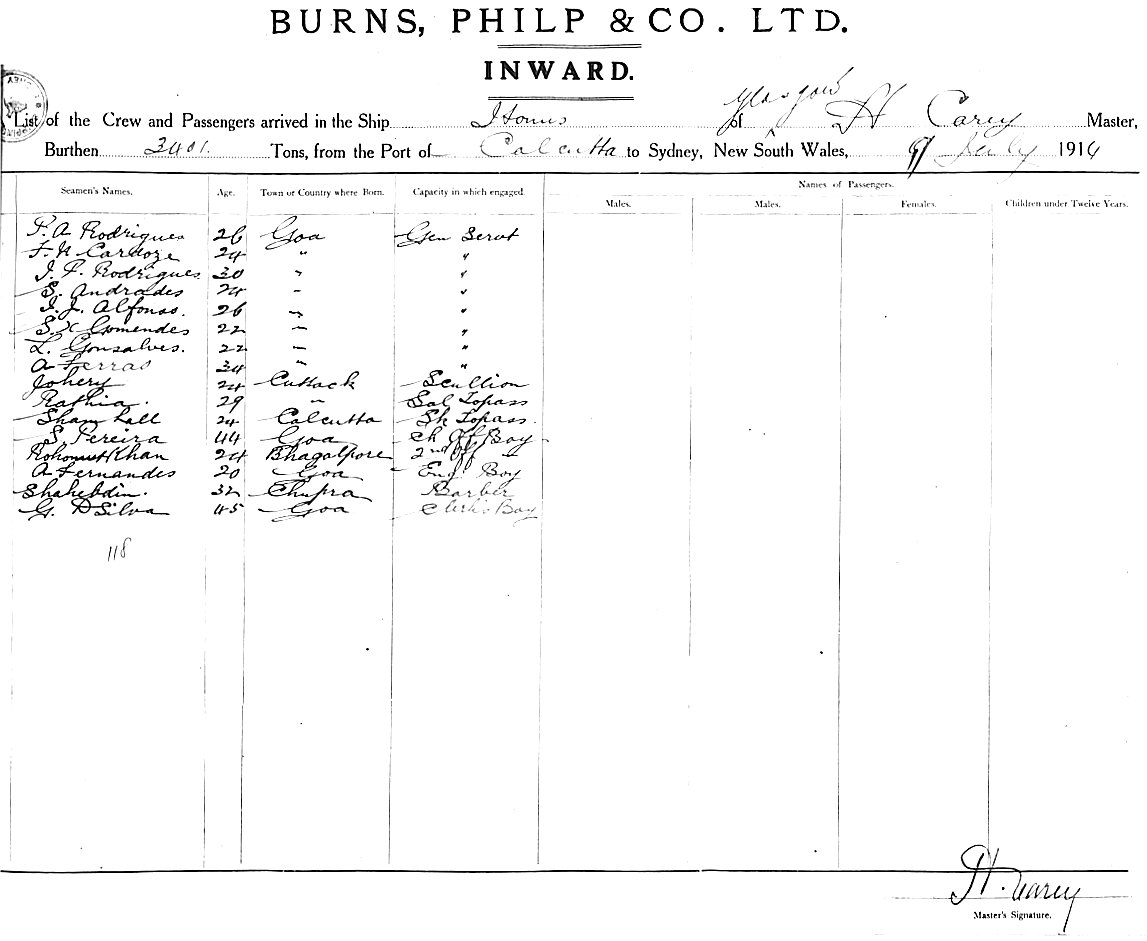 BURNS, PHILP & CO. LTD.
INWARD.
Glasgow
List of the Crew and Passengers arrived in the Ship of H Carey Master,
Burthen 3401. Tons, from the Port of Calcutta to Sydney, New South Wales, 9/ July 1914
Names of Passengers.
Seamen's Names. Age. Town or Country where Born. Capacity in which engaged.
Males. Males. Females. Children under Twelve Years.
F. A Rodrigues 26 Goa Gen Servt
F. N Cardoze 24 " "
J. P. Rodrigues 30 " "
S. Andrades 24 " "
J. J. Alfonso. 26 " "
S. X Gomendes 22 " "
L. Gonsalves. 22 " "
A Ferrao 34 " "
Johery 24 Cuttack Scullion
Rathia. 29 " Sal Topass
Sham Lall 24 Calcutta Sk Topass.
S. Pereira 44 Goa Ch Off Boy
Rohomut Khan 24 Bhagalpore 2nd Off "
A Fernandes 20 Goa Eng. Boy
Shahebdin. 32 Chupra Barber
G. DSilva 45 Goa Clerk's Boy
118
H. Carey
Master's Signature.